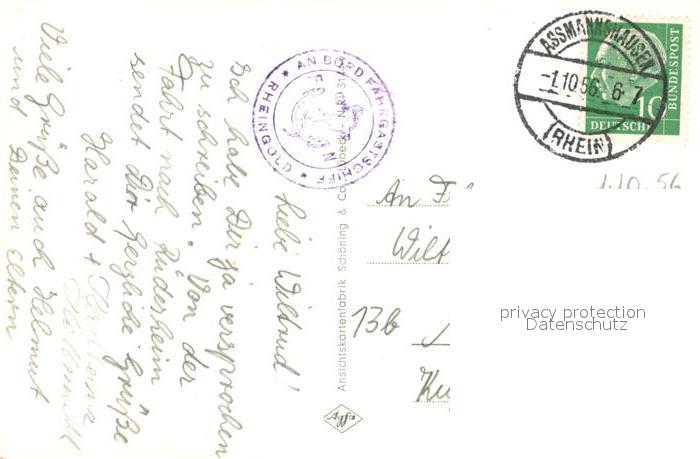 Liebe Wiltrud!
Ich habe Dir ja versprochen
zu schreiben. Von der
Fahrt nach Rüdesheim
sendet Dir herzliche Grüße
Harald +
Helmuth
Viele Grüße auch Helmut
und Deinen Eltern
AN BORD FAHRGASTSCHIFF
RHEINGOLD
Ansichtskartenfabrik Schöning & Co
Agfa
ASSMANNSHAUSEN
-1.10.56.6-7
(RHEIN)
10
DEUTSCHE
BUNDESPOST
1.10.56
An
Wilt
13b
privacy protection
Datenschutz